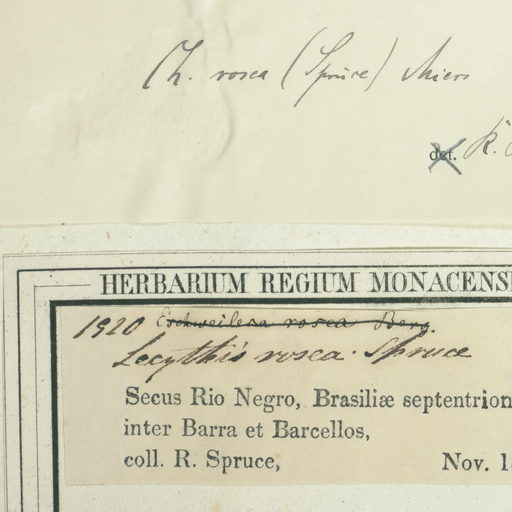 Ch. rosea (Spruce) Miers
det. K.
HERBARIUM REGIUM MONACENS
1920 Eschweilera rosea Berg.
Lecythis rosea. Spruce
Secus Rio Negro, Brasiliæ septentrion
inter Barra et Barcellos,
coll. R. Spruce, Nov. 18